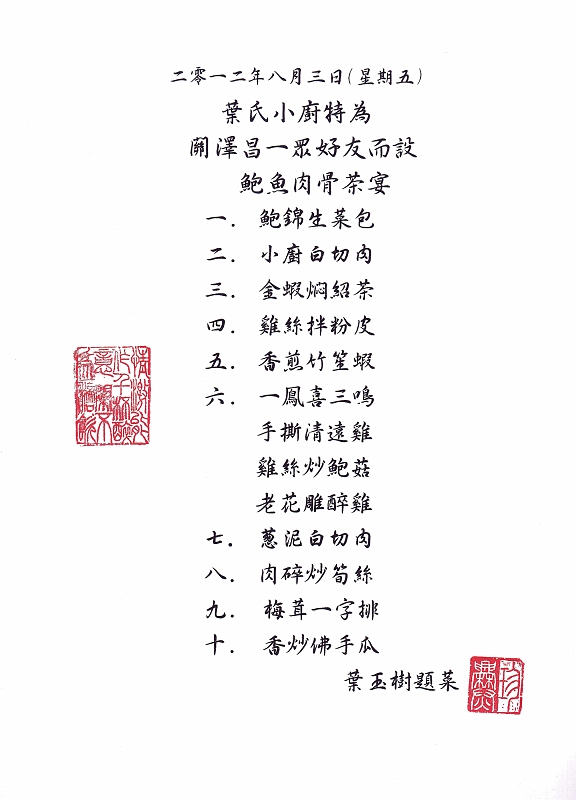 二零一二年八月三日(星期五)
葉氏小廚特為
關澤昌一眾好友而設
鮑魚肉骨茶宴
一. 鮑錦生菜包
二. 小廚白切肉
三. 金蝦焖紹茶
四. 雞絲拌粉皮
五. 香煎竹笙蝦
六. 一鳳喜三鳴
手撕清遠雞
雞絲炒鮑菇
老花雕醉雞
七. 蔥泥白切肉
八. 肉碎炒筍絲
九. 梅茸一字排
十. 香炒佛手瓜
葉玉樹題菜